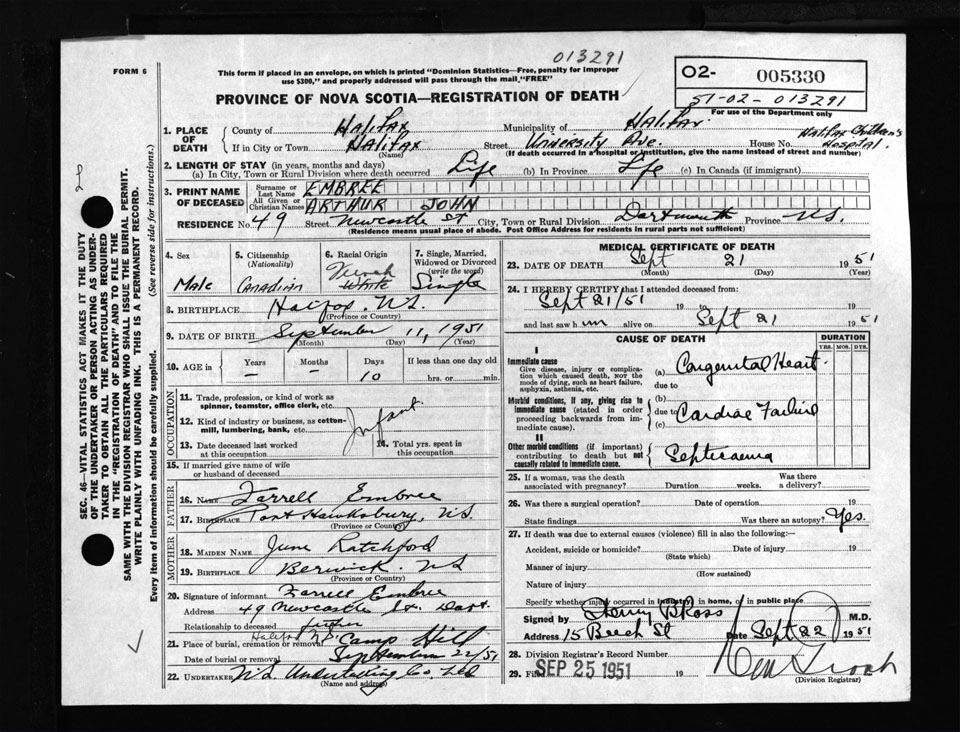 013291
FORM 6
This form if placed in an envelope, on which is printed "Dominion Statistics—Free, penalty for improper
use $300," and properly addressed will pass through the mail, "FREE"
O2- 005330
51-02-013291
For use of the Department only
PROVINCE OF NOVA SCOTIA—REGISTRATION OF DEATH
1. PLACE OF DEATH
County of Halifax Municipality of Halifax.
If in City or Town Halifax Street University Ave. House No. Halifax Children's Hospital.
(Name) (If death occurred in a hospital or institution, give the name instead of street and number)
2. LENGTH OF STAY (in years, months and days)
(a) In City, Town or Rural Division where death occurred Life (b) In Province Life (c) In Canada (if immigrant)
3. PRINT NAME OF DECEASED
Surname or Last Name EMBREE
All Given or Christian Names ARTHUR JOHN
RESIDENCE No. 49 Street Newcastle St City, Town or Rural Division Dartmouth Province N.S.
(Residence means usual place of abode. Post Office Address for residents in rural parts not sufficient)
4. Sex Male
5. Citizenship (Nationality) Canadian
6. Racial Origin White
7. Single, Married, Widowed or Divorced (write the word) Single
8. BIRTHPLACE Halifax, N.S.
(Province or Country)
9. DATE OF BIRTH September 11, 1951
(Month) (Day) (Year)
10. AGE in Years — Months — Days 10 If less than one day old hrs. or min.
OCCUPATION
11. Trade, profession, or kind of work as
spinner, teamster, office clerk, etc.
12. Kind of industry or business, as cotton-
mill, lumbering, bank, etc. Infant
13. Date deceased last worked
at this occupation
14. Total yrs. spent in
this occupation
15. If married give name of wife
or husband of deceased
FATHER
16. Name Farrell Embree
17. Birthplace Port Hawksbury, N.S.
(Province or Country)
MOTHER
18. Maiden Name June Ratchford
19. Birthplace Berwick. N.S
(Province or Country)
20. Signature of informant Farrell Embree
Address 49 Newcastle St. Dart.
Relationship to deceased father
21. Place of burial, cremation or removal Halifax N.S. Camp Hill
Date of burial or removal September 22/51
22. UNDERTAKER N.S. Undertaking Co. Ltd
(Name and address)
MEDICAL CERTIFICATE OF DEATH
23. DATE OF DEATH Sept 21 1951
(Month) (Day) (Year)
24. I HEREBY CERTIFY that I attended deceased from:
Sept 21/51 19 to 19
and last saw him alive on Sept 21 1951
CAUSE OF DEATH DURATION
YRS. MOS. DYS.
I
Immediate cause
Give disease, injury or complica-
tion which caused death, NOT the
mode of dying, such as heart failure,
asphyxia, asthenia, etc.
(a) Congenital Heart.
due to
Morbid conditions, if any, giving rise to
immediate cause (stated in order
proceeding backwards from im-
mediate cause).
(b)
due to Cardiac Failure
(c)
II
Other morbid conditions (if important)
contributing to death but not
causally related to immediate cause.
Septicaemia
25. If a woman, was the death
associated with pregnancy? Duration weeks. Was there
a delivery?
26. Was there a surgical operation? Date of operation 19
State findings Was there an autopsy? Yes.
27. If death was due to external causes (violence) fill in also the following:—
Accident, suicide or homicide? Date of injury 19
(State which)
Manner of injury
(How sustained)
Nature of injury
Specify whether injury occurred in industry, in home, or in public place
Signed by Henry B Ross M.D.
Address 15 Beech St Date Sept 22 1951
28. Division Registrar's Record Number
29. Filed SEP 25 1951 19
(Division Registrar)
SEC. 46—VITAL STATISTICS ACT MAKES IT THE DUTY
OF THE UNDERTAKER OR PERSON ACTING AS UNDER-
TAKER TO OBTAIN ALL THE PARTICULARS REQUIRED
IN THE "REGISTRATION OF DEATH" AND TO FILE THE
SAME WITH THE DIVISION REGISTRAR WHO SHALL ISSUE THE BURIAL PERMIT.
WRITE PLAINLY WITH UNFADING INK. THIS IS A PERMANENT RECORD.
Every item of information should be carefully supplied. (See reverse side for instructions.)